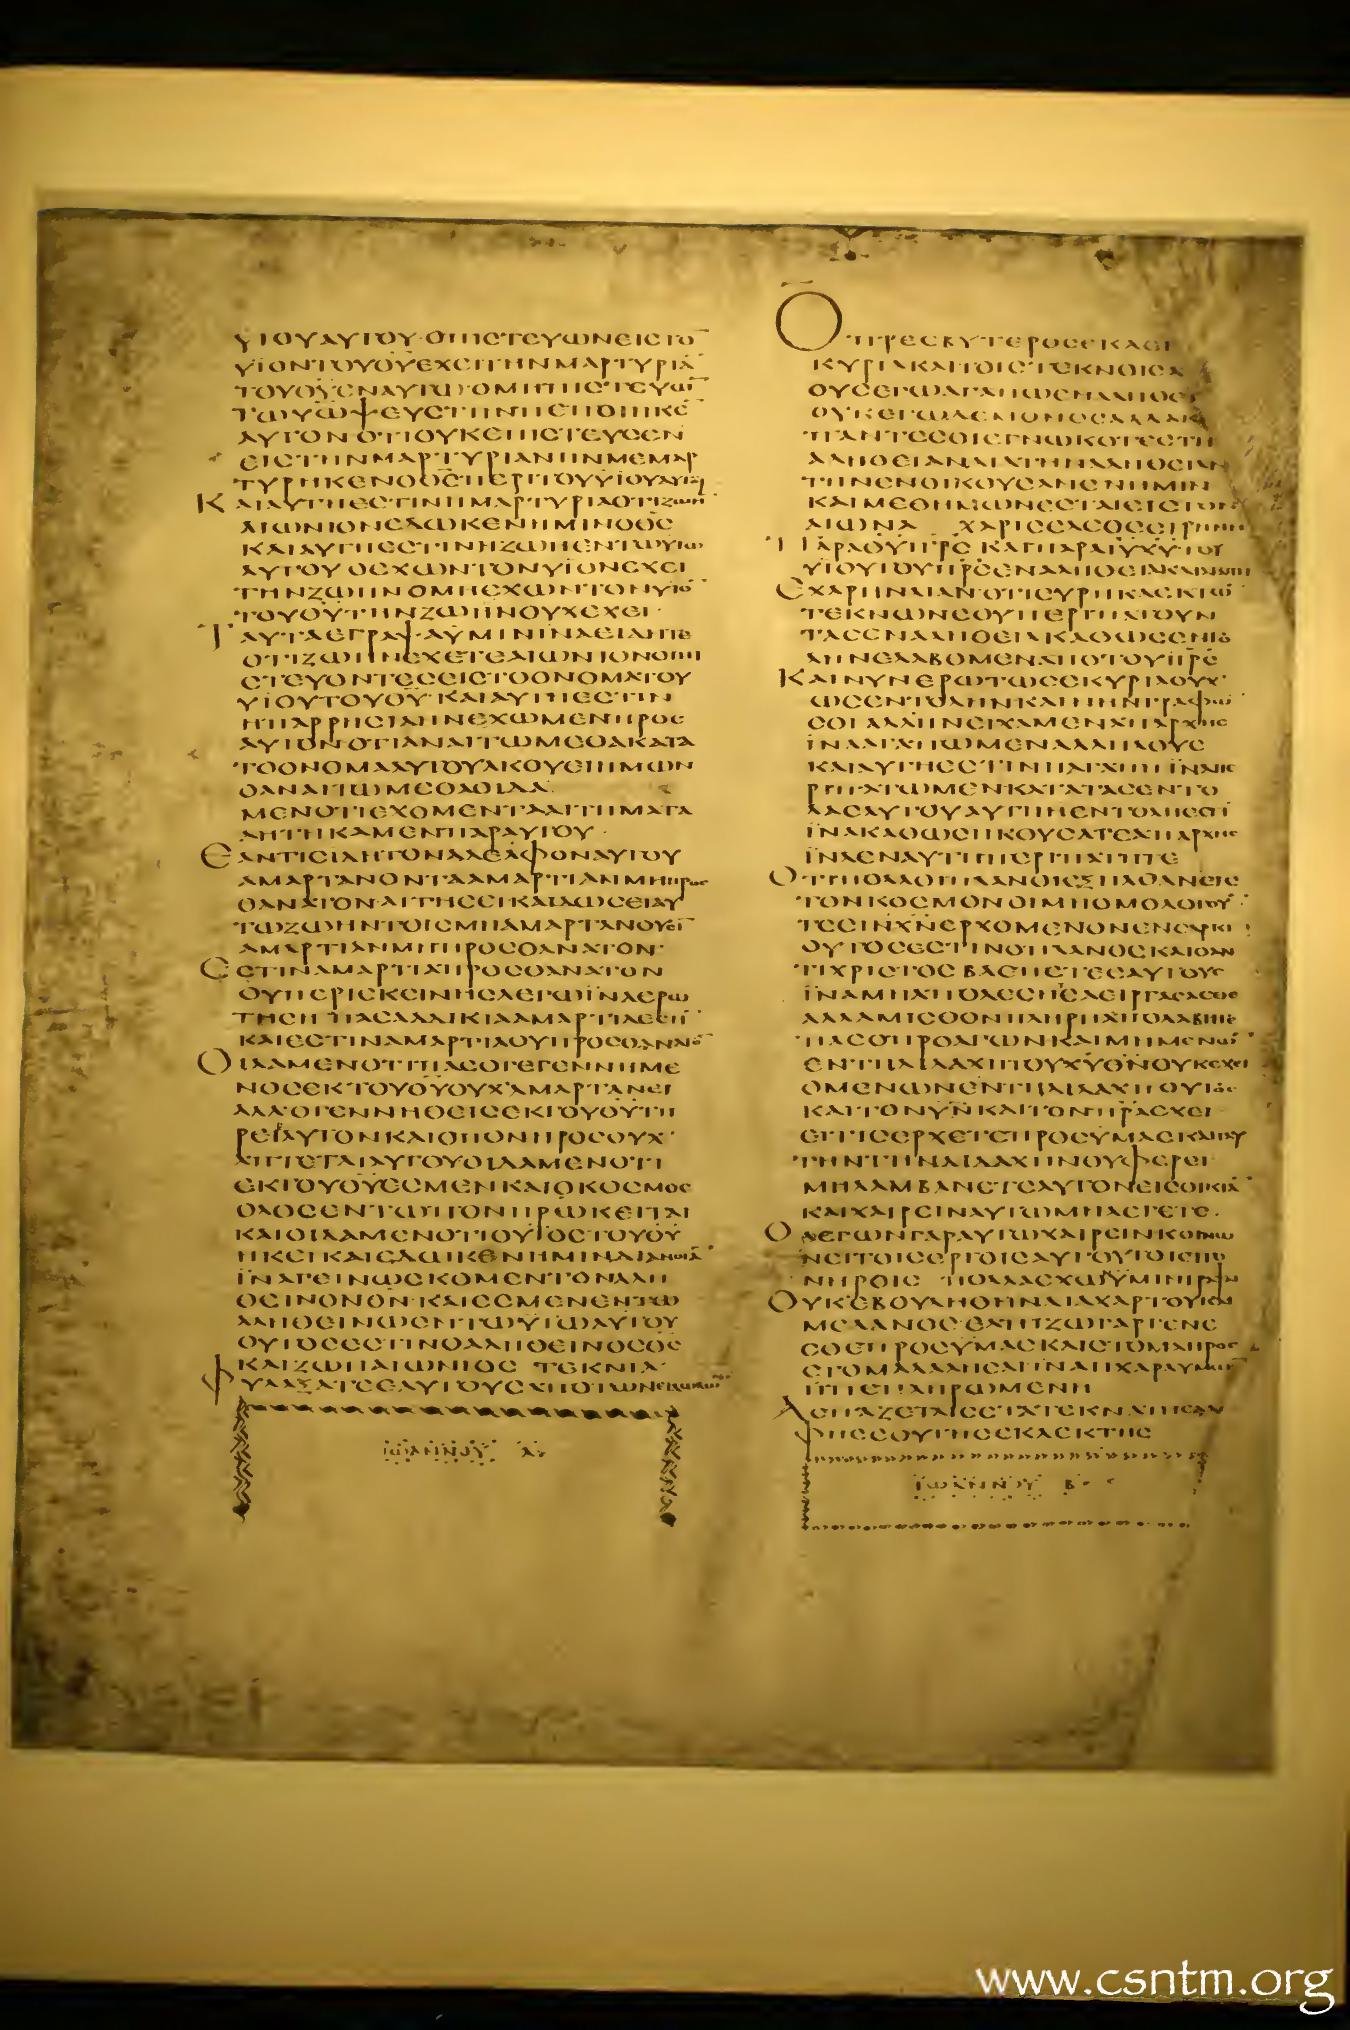 ΥΙΟΥΑΥΤΟΥ· ΟΠΙΣΤΕΥΩΝΕΙΣΤΟ¯
ΥΙΟΝΤΟΥΘΥΕΧΕΙΤΗΝΜΑΡΤΥΡΙΑ¯
ΤΟΥΘΥΕΝΑΥΤΩ· ΟΜΗΠΙΣΤΕΥΩ¯
ΤΩΥΩΨΕΥΣΤΗΝΠΕΠΟΙΗΚΕ¯
ΑΥΤΟΝ ΟΤΙΟΥΚΕΠΙΣΤΕΥΣΕΝ
ΕΙΣΤΗΝΜΑΡΤΥΡΙΑΝΗΝΜΕΜΑΡ
ΤΥΡΗΚΕΝΟΘΣΠΕΡΙΤΟΥΥΙΟΥΑΥΤΟΥ
ΚΑΙΑΥΤΗΕΣΤΙΝΗΜΑΡΤΥΡΙΑΟΤΙΖΩΗΝ
ΑΙΩΝΙΟΝΕΔΩΚΕΝΗΜΙΝΟΘΣ
ΚΑΙΑΥΤΗΕΣΤΙΝΗΖΩΗΕΝΤΩΥΙΩ
ΑΥΤΟΥ ΟΕΧΩΝΤΟΝΥΙΟΝΕΧΕΙ
ΤΗΝΖΩΗΝΟΜΗΕΧΩΝΤΟΝΥΙΟ¯
ΤΟΥΘΥΤΗΝΖΩΗΝΟΥΧΕΧΕΙ·
ΤΑΥΤΑΕΓΡΑΨΑΥΜΙΝΙΝΑΕΙΔΗΤΕ
ΟΤΙΖΩΗΝΕΧΕΤΕΑΙΩΝΙΟΝΟΙΠΙ
ΣΤΕΥΟΝΤΕΣΕΙΣΤΟΟΝΟΜΑΤΟΥ
ΥΙΟΥΤΟΥΘΥ· ΚΑΙΑΥΤΗΕΣΤΙΝ
ΗΠΑΡΡΗΣΙΑΗΝΕΧΩΜΕΝΠΡΟΣ
ΑΥΤΟΝΟΤΙΑΝΑΙΤΩΜΕΘΑΚΑΤΑ
ΤΟΟΝΟΜΑΑΥΤΟΥΑΚΟΥΕΙΗΜΩΝ
ΟΑΝΑΙΤΩΜΕΘΑΟΙΔΑ
ΜΕΝΟΤΙΕΧΟΜΕΝΤΑΑΙΤΗΜΑΤΑ
ΑΗΤΗΚΑΜΕΝΠΑΡΑΥΤΟΥ·
ΕΑΝΤΙΣΙΔΗΤΟΝΑΔΕΛΦΟΝΑΥΤΟΥ
ΑΜΑΡΤΑΝΟΝΤΑΑΜΑΡΤΙΑΝΜΗΠΡΟΣ
ΘΑΝΑΤΟΝ·ΑΙΤΗΣΕΙΚΑΙΔΩΣΕΙΑΥ
ΤΩΖΩΗΝΤΟΙΣΜΗΑΜΑΡΤΑΝΟΥΣΙ¯
ΑΜΑΡΤΙΑΝΜΗΠΡΟΣΘΑΝΑΤΟΝ·
ΕΣΤΙΝΑΜΑΡΤΙΑΠΡΟΣΘΑΝΑΤΟΝ
ΟΥΠΕΡΙΕΚΕΙΝΗΣΛΕΓΩΙΝΑΕΡΩ
ΤΗΣΗ ΠΑΣΑΑΔΙΚΙΑΑΜΑΡΤΙΑΕΣΤΙ¯
ΚΑΙΕΣΤΙΝΑΜΑΡΤΙΑΟΥΠΡΟΣΘΑΝΑΤΟ¯
ΟΙΔΑΜΕΝΟΤΙΠΑΣΟΓΕΓΕΝΝΗΜΕ
ΝΟΣΕΚΤΟΥΘΥΟΥΧΑΜΑΡΤΑΝΕΙ
ΑΛΛΟΓΕΝΝΗΘΕΙΣΕΚΤΟΥΘΥΤΗ
ΡΕΙΑΥΤΟΝΚΑΙΟΠΟΝΗΡΟΣΟΥΧ
ΑΠΤΕΤΑΙΑΥΤΟΥΟΙΔΑΜΕΝΟΤΙ
ΕΚΤΟΥΘΥΕΣΜΕΝ ΚΑΙΟΚΟΣΜΟΣ
ΟΛΟΣΕΝΤΩΠΟΝΗΡΩΚΕΙΤΑΙ
ΚΑΙΟΙΔΑΜΕΝΟΤΙΟΥΙΟΣΤΟΥΘΥ
ΗΚΕΙΚΑΙΕΔΩΚΕΝΗΜΙΝΔΙΑΝΟΙΑ¯
ΙΝΑΓΕΙΝΩΣΚΟΜΕΝΤΟΝΑΛΗ
ΘΕΙΝΟΝΘΝ·ΚΑΙΕΣΜΕΝΕΝΤΩ
ΑΛΗΘΕΙΝΩΕΝΤΩΥΙΩΑΥΤΟΥ
ΟΥΤΟΣΕΣΤΙΝΟΑΛΗΘΕΙΝΟΣΘΣ
ΚΑΙΖΩΗΑΙΩΝΙΟΣ ΤΕΚΝΙΑ·
ΦΥΛΑΞΑΤΕΕΑΥΤΟΥΣΑΠΟΤΩΝΕΙΔΩΛΩΝ
ΙΩΑΝΝΟΥ Α·
ΟΠΡΕΣΒΥΤΕΡΟΣΕΚΛΕΚ
ΚΥΡΙΑΚΑΙΤΟΙΣΤΕΚΝΟΙΣΑ
ΟΥΣΕΓΩΑΓΑΠΩΕΝΑΛΗΘΕΙ
ΟΥΚΕΓΩΔΕΜΟΝΟΣΑΛΛΑΚ
ΠΑΝΤΕΣΟΙΕΓΝΩΚΟΤΕΣΤΗ
ΑΛΗΘΕΙΑΝΔΙΑΤΗΝΑΛΗΘΕΙΑΝ
ΤΗΝΕΝΟΙΚΟΥΣΑΝΕΝΗΜΙΝ
ΚΑΙΜΕΘΗΜΩΝΕΣΤΑΙΕΙΣΤΟΝ
ΑΙΩΝΑ ΧΑΡΙΣΕΛΕΟΣΕΙΡΗΝΗ
ΠΑΡΑΘΥΠΡΣ ΚΑΙΠΑΡΑΙΥΧΥ·ΤΟΥ
ΥΙΟΥΤΟΥΠΡΣΕΝΑΛΗΘΕΙΑΚΑΙΑΓΑΠΗ
ΕΧΑΡΗΝΛΙΑΝ·ΟΤΙΕΥΡΗΚΑΕΚΤΩ¯
ΤΕΚΝΩΝΣΟΥΠΕΡΙΠΑΤΟΥΝ
ΤΑΣΕΝΑΛΗΘΕΙΑΚΑΘΩΣΕΝΤΟ
ΛΗΝΕΛΑΒΟΜΕΝΑΠΟΤΟΥΠΡΣ
ΚΑΙΝΥΝΕΡΩΤΩΣΕΚΥΡΙΑΟΥΧ
ΩΣΕΝΤΟΛΗΝΚΑΙΝΗΝΓΡΑΦΩ
ΣΟΙ ΑΛΛΗΝΕΙΧΑΜΕΝΑΠΑΡΧΗΣ
ΙΝΑΑΓΑΠΩΜΕΝΑΛΛΗΛΟΥΣ
ΚΑΙΑΥΤΗΕΣΤΙΝΗΑΓΑΠΗ ΙΝΑΠΕ
ΡΙΠΑΤΩΜΕΝΚΑΤΑΤΑΣΕΝΤΟ
ΛΑΣΑΥΤΟΥΑΥΤΗΗΕΝΤΟΛΗΕΣΤΙ
ΙΝΑΚΑΘΩΣΗΚΟΥΣΑΤΕΑΠΑΡΧΗΣ
ΙΝΑΕΝΑΥΤΗΠΕΡΙΠΑΤΗΤΕ
ΟΤΙΠΟΛΛΟΙΠΛΑΝΟΙΕΞΗΛΘΑΝΕΙΣ
ΤΟΝΚΟΣΜΟΝΟΙΜΗΟΜΟΛΟΓΟΥ¯
ΤΕΣΙΝΧΝΕΡΧΟΜΕΝΟΝΕΝΣΑΡΚΙ
ΟΥΤΟΣΕΣΤΙΝΟΠΛΑΝΟΣΚΑΙΟΑΝ
ΤΙΧΡΙΣΤΟΣ ΒΛΕΠΕΤΕΕΑΥΤΟΥΣ
ΙΝΑΜΗΑΠΟΛΕΣΗΤΕΑΕΙΡΓΑΣΑΣΘΕ
ΑΛΛΑΜΙΣΘΟΝΠΛΗΡΗΑΠΟΛΑΒΗΤΕ
ΠΑΣΟΠΡΟΑΓΩΝΚΑΙΜΗΜΕΝΩ¯
ΕΝΤΗΔΙΔΑΧΗΤΟΥΧΥΘΝΟΥΚΕΧΕΙ
ΟΜΕΝΩΝΕΝΤΗΔΙΔΑΧΗΟΥΤΟΣ
ΚΑΙΤΟΝΥΝΚΑΙΤΟΝΠΡΑΕΧΕΙ
ΕΙΤΙΣΕΡΧΕΤΕΠΡΟΣΥΜΑΣΚΑΙΤΑΥ
ΤΗΝΤΗΝΔΙΔΑΧΗΝΟΥΦΕΡΕΙ
ΜΗΛΑΜΒΑΝΕΤΕΑΥΤΟΝΕΙΣΟΙΚΙΑ¯
ΚΑΙΧΑΙΡΕΙΝΑΥΤΩΜΗΛΕΓΕΤΕ·
ΟΛΕΓΩΝΓΑΡΑΥΤΩΧΑΙΡΕΙΝΚΟΙΝΩ
ΝΕΙΤΟΙΣΕΡΓΟΙΣΑΥΤΟΥΤΟΙΣΠΟ
ΝΗΡΟΙΣ ΠΟΛΛΑΕΧΩΥΜΙΝΓΡΑΦΙΝ
ΟΥΚΕΒΟΥΛΗΘΗΝΔΙΑΧΑΡΤΟΥΚΑΙ
ΜΕΛΑΝΟΣ ΕΛΠΙΖΩΓΑΡΓΕΝΕ
ΣΘΕΠΡΟΣΥΜΑΣΚΑΙΣΤΟΜΑΠΡΟΣ
ΣΤΟΜΑΛΑΛΗΣΑΙΙΝΑΗΧΑΡΑΥΜΩΝ
ΗΠΕΠΛΗΡΩΜΕΝΗ
ΑΣΠΑΖΕΤΑΙΣΕΤΑΤΕΚΝΑΤΗΣΑΔΕΛ
ΦΗΣΣΟΥΤΗΣΕΚΛΕΚΤΗΣ
ΙΩΑΝΝΟΥ Β·
www.csntm.org